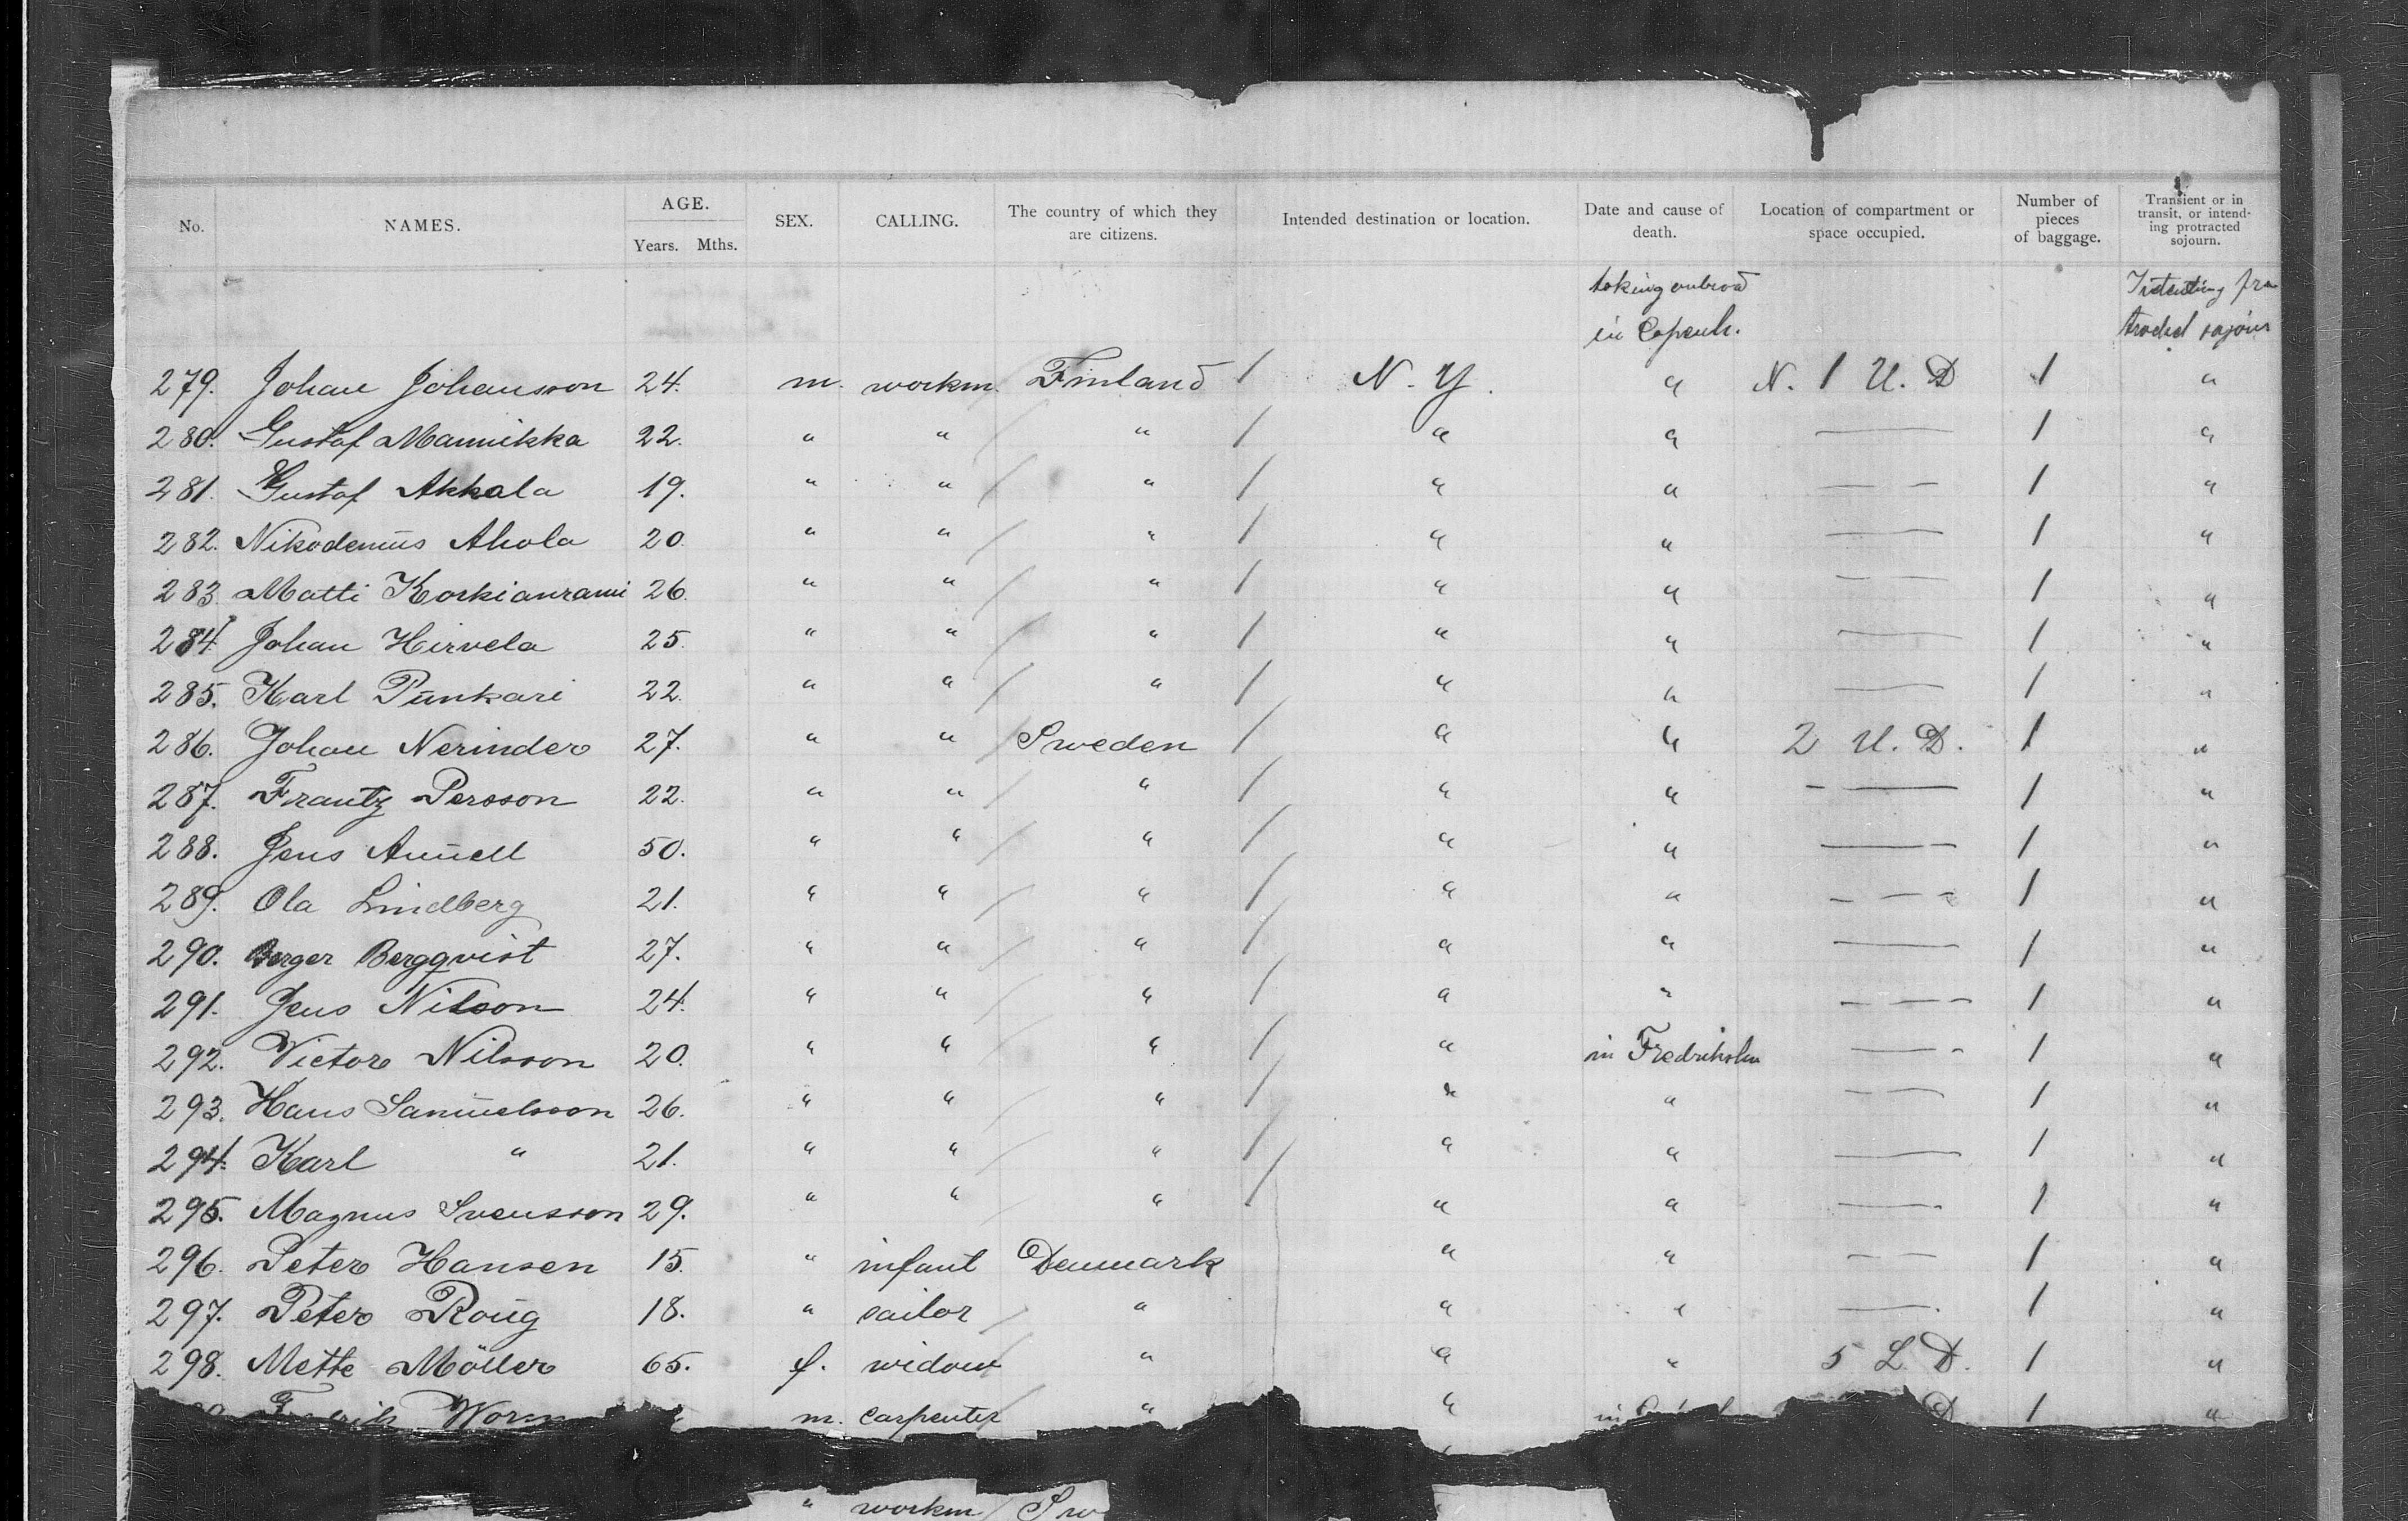 No. NAMES. AGE. Years. Mths. SEX. CALLING. The country of which they are citizens. Intended destination or location. Date and cause of death. Location of compartment or space occupied. Number of pieces of baggage. Transient or in transit, or intending protracted sojourn.
taking onbroad
in Copenh.
279. Johan Johansson 24. m. workm. Finland / N. Y. " N. 1 U. D 1 "
280. Gustaf Mannikka 22. " " " / " " — 1 "
281. Gustaf Akkala 19. " " " / " " — — 1 "
282. Nikodemūs Ahola 20. " " " / " " — 1 "
283. Matti 26. " " " / " " — — 1 "
284. Johan Hirvela 25. " " " / " " — 1 "
285. Karl Pūnkari 22. " " " / " " — 1 "
286. Johan Nerinder 27. " " Sweden / " " 2 U. D. 1 "
287. Frantz Persson 22. " " " / " " — 1 "
288. Jens 50. " " " / " " — 1 "
289. Ola Lindberg 21. " " " / " " — — 1 "
290. Berger Bergqvist 27. " " " / " " — 1 "
291. Jens Nilson 24. " " " / " " — — — 1 "
292. Victor Nilsson 20. " " " / " in — 1 "
293. Hans Samūelsson 26. " " " / " " — — 1 "
294. Karl " 21. " " " / " " — 1 "
295. Magnus Svensson 29. " " " / " " — 1 "
296. Peter Hansen 15. " infant Denmark " " — — 1 "
297. Peter Roūg 18. " sailor " " " — 1 "
298. Mette Möller 65. f. widow " " " 5 L. D. 1 "
m. carpenter " " in D 1 "
" workm Sw